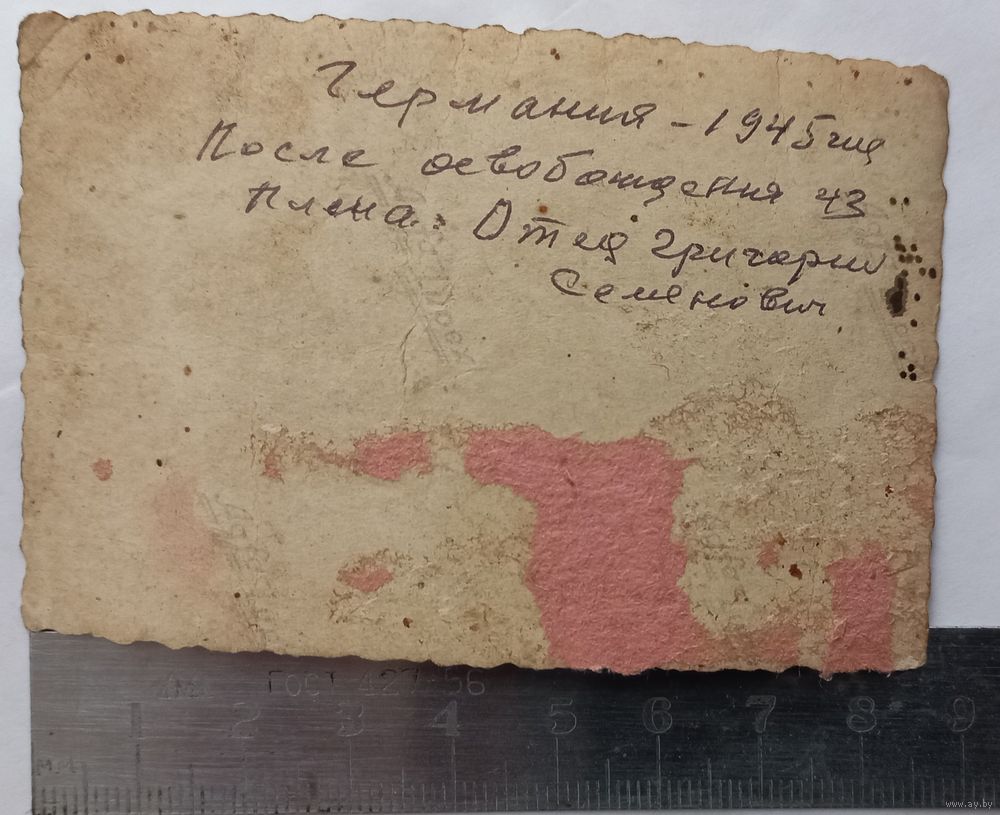 Германия - 1945 год
После освобождения из
плена: Отец Григорий
Семенович
ГОСТ 427-56
1 2 3 4 5 6 7 8 9
мм
www.ay.by